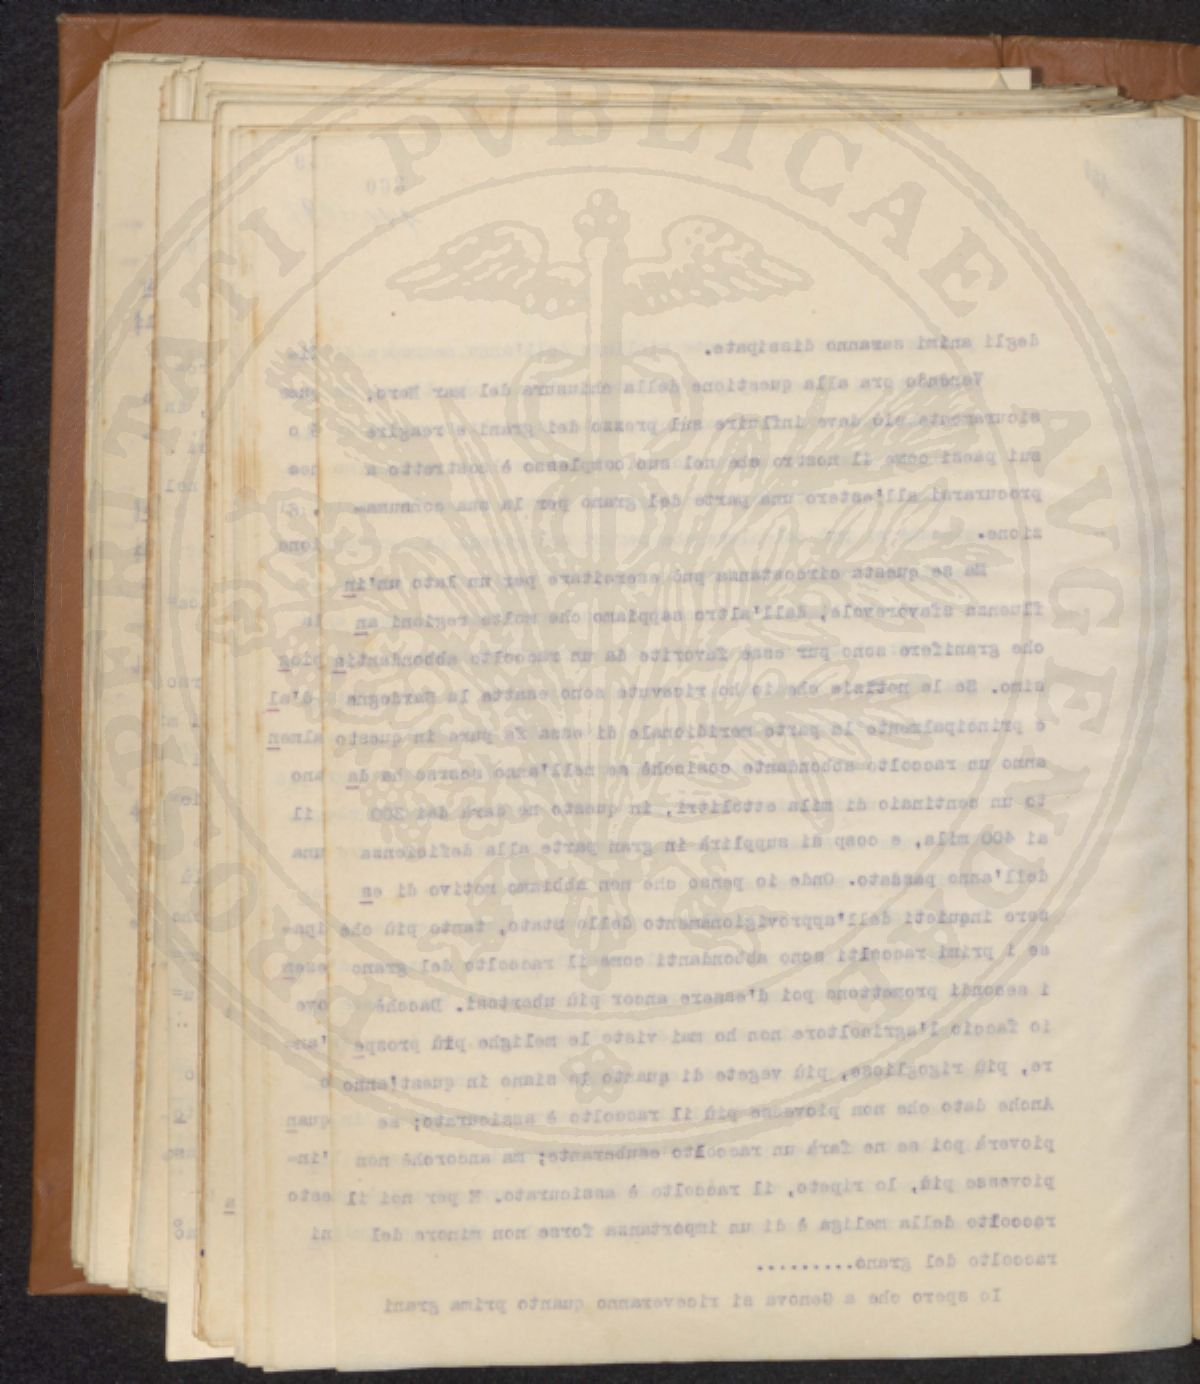 PROSPERITATI PVBLICAE AVGENDAE
degli animi saranno dissipate.
Venendo ora alla questione della chiusura del Mar Nero,
sicuramente ciò deve influire sul prezzo dei grani e reagire
sui paesi come il nostro che nel suo complesso è costretto a
procurarsi all'estero una parte del grano per la sua consuma-
zione.
Ma se questa circostanza può esercitare per un lato un'in
fluenza sfavorevole, dall'altro sappiamo che molte regioni an
che granifere sono pur esse favorite da un raccolto abbondantis
simo. Se le notizie che io ho ricevute sono esatte la Sardegna
e principalmente la parte meridionale di essa fa pure in questo
anno un raccolto abbondante cosicchè se nell'anno scorso ha da
to un centinaio di mila ettolitri, in questo ne darà dai 300
ai 400 mila, e cosp si supplirà in gran parte alla deficienza
dell'anno passato. Onde io penso che non abbiamo motivo di es
sere inquieti dell'approvigionamento dello Stato, tanto più che
se i primi raccolti sono abbondanti come il raccolto del grano
i secondi promettono poi d'essere ancor più ubertosi. Dacchè
io faccio l'agricoltore non ho mai viste le melighe più prospe
re, più rigogliose, più vegete di quanto le siano in quest'anno
Anche dato che non piovesse più il raccolto è assicurato; se
pioverà poi se ne farà un raccolto esuberante; ma ancorchè non
piovesse più, lo ripeto, il raccolto è assicurato. E per noi il
raccolto della meliga è di un importanza forse non minore del
raccolto del grano..........
Io spero che a Genova si riceveranno quanto prima grani